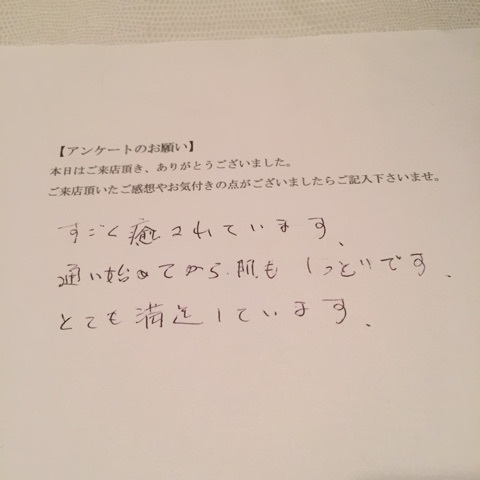 【アンケートのお願い】
本日はご来店頂き、ありがとうございました。
ご来店頂いたご感想やお気付きの点がございましたらご記入下さいませ。
すごく癒されています、
通い始めてから、肌も しっとりです、
とても満足しています、